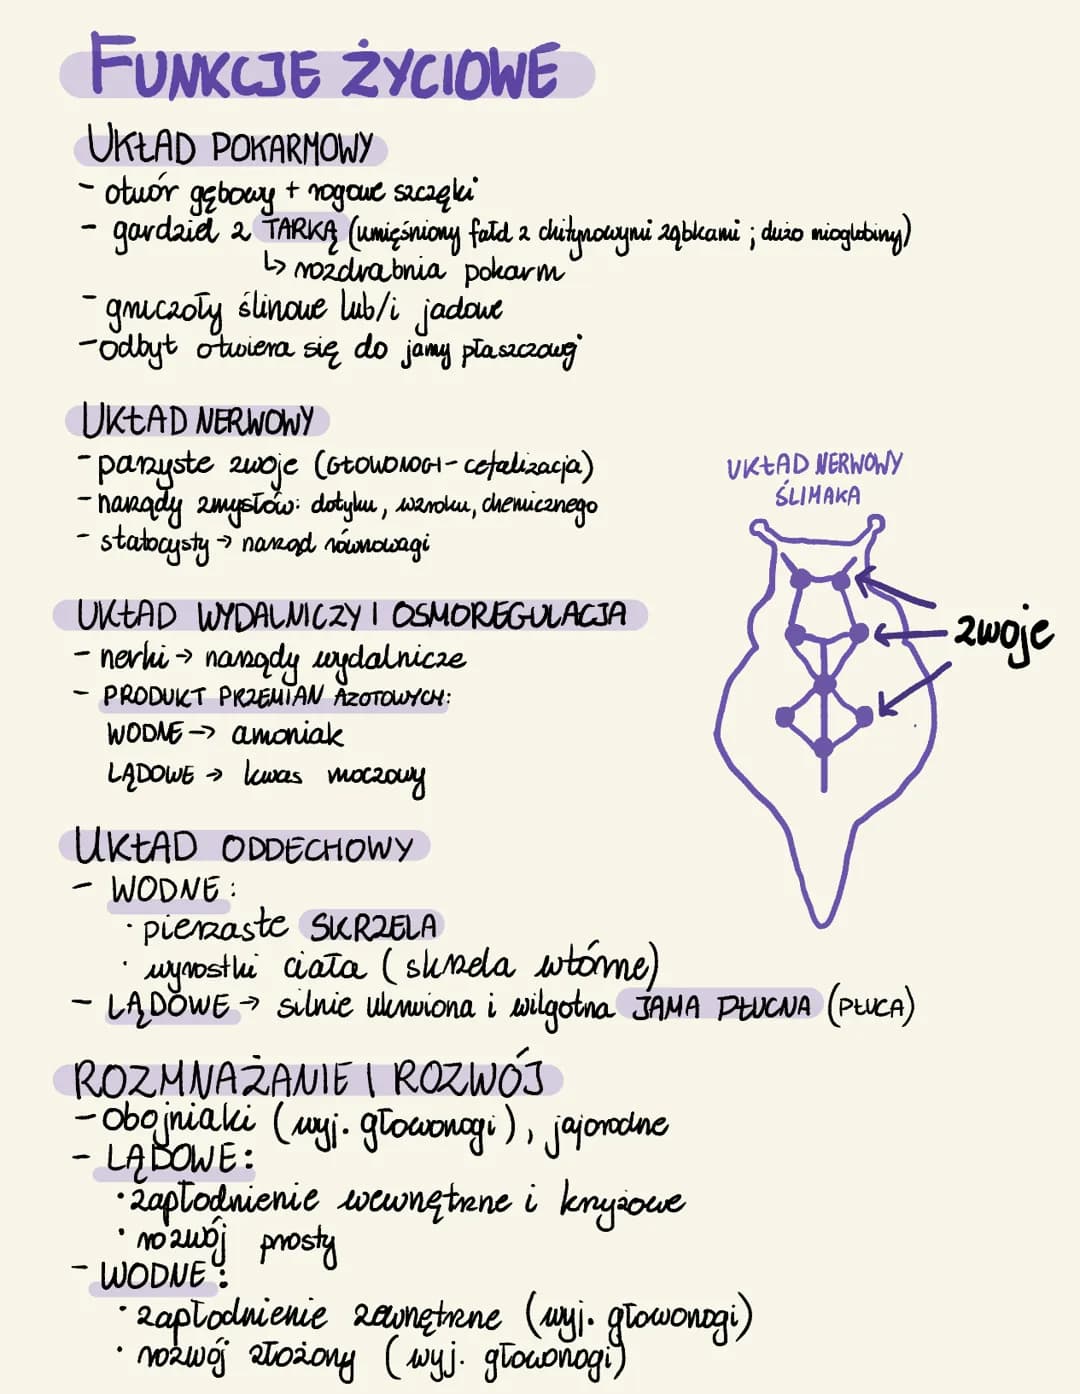 FUNKCJE ŻYCIOWE
UKŁAD POKARMOWY
- otwór gębowy + rogowe szczęki
- gardziel z TARKĄ (umięśniony fałd z chitynowymi ząbkami ; dużo mioglobiny)
↳ rozdrabnia pokarm
- gruczoły ślinowe lub/i jadowe
- odbyt otwiera się do jamy płaszczowej
UKŁAD NERWOWY
- parzyste zwoje (GŁOWONOGI - cefalizacja)
- narządy zmysłów: dotyku, wzroku, chemicznego
- statocysty → narząd równowagi
UKŁAD NERWOWY
ŚLIMAKA
zwoje
UKŁAD WYDALNICZY I OSMOREGULACJA
- nerki → narządy wydalnicze
- PRODUKT PRZEMIAN AZOTOWYCH:
WODNE → amoniak
LĄDOWE → kwas moczowy
UKŁAD ODDECHOWY
- WODNE :
· pierzaste SKRZELA
· wyrostki ciała ( skrzela wtórne)
- LĄDOWE → silnie ukrwiona i wilgotna JAMA PŁUCNA (PŁUCA)
ROZMNAŻANIE I ROZWÓJ
- obojniaki (wyj. głowonogi), jajorodne
- LĄDOWE:
· zapłodnienie wewnętrzne i krzyżowe
· rozwój prosty
- WODNE :
· zapłodnienie zewnętrzne (wyj. głowonogi)
· rozwój złożony ( wyj. głowonogi)